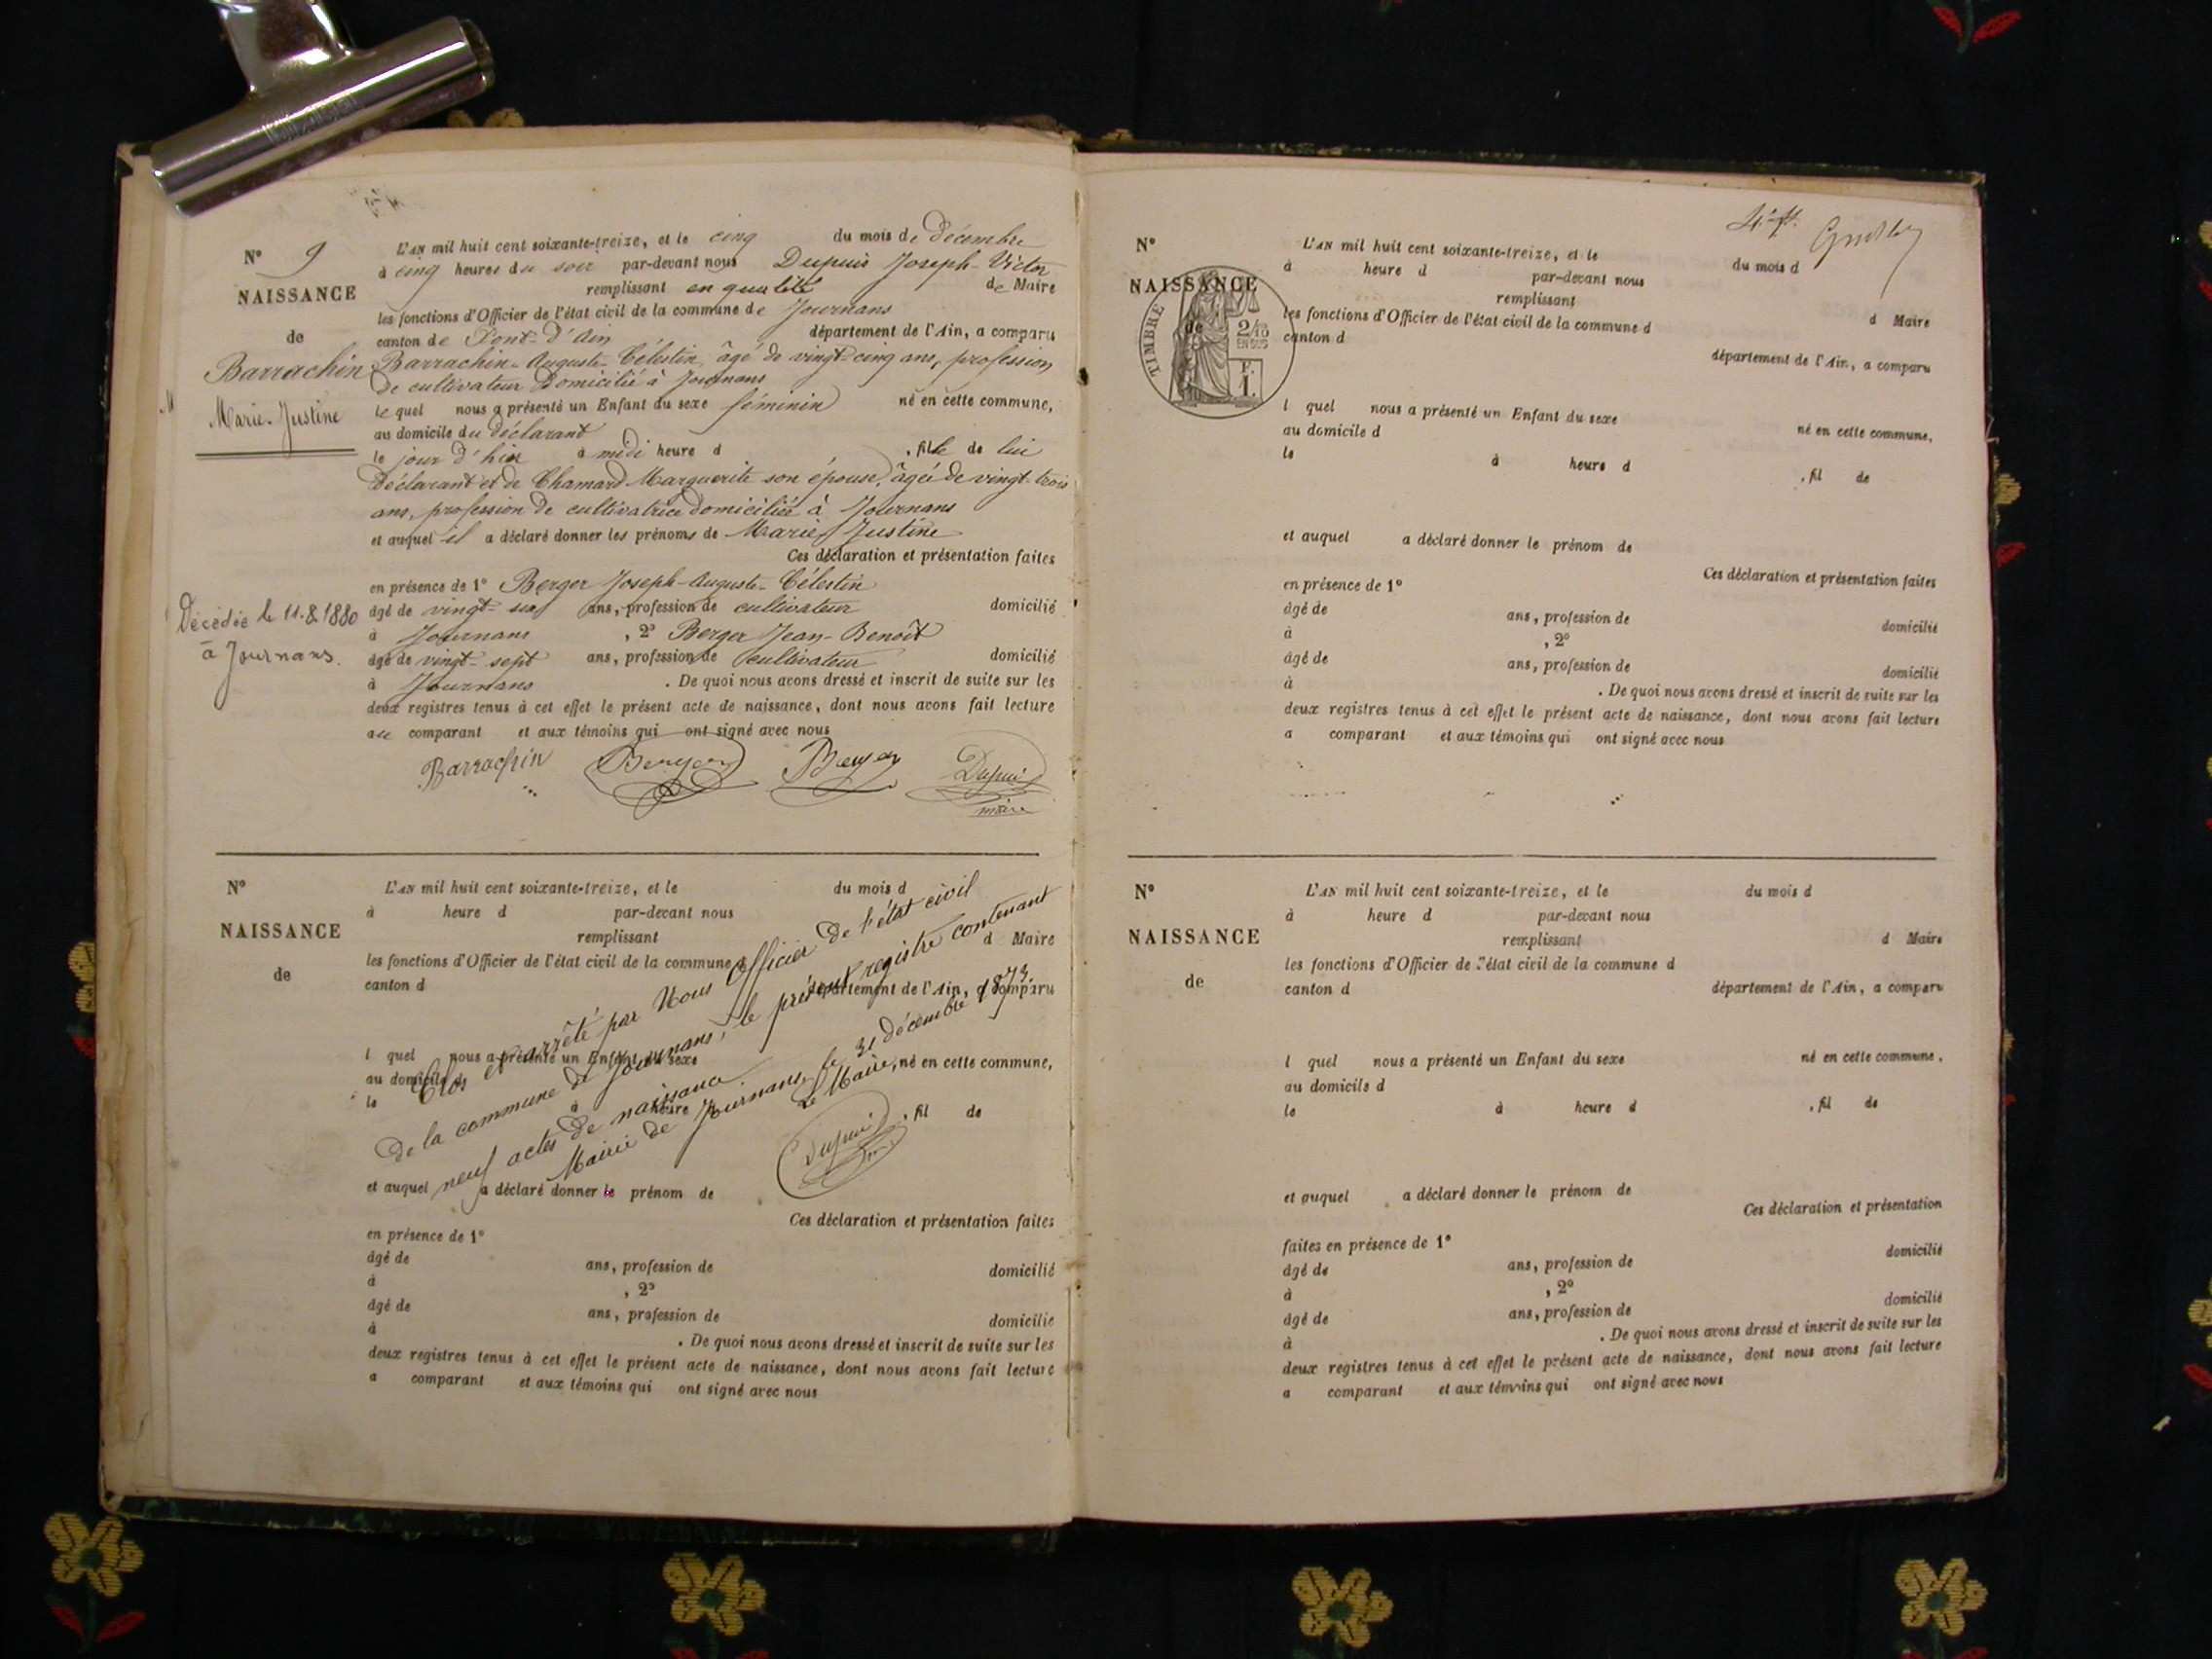 N° 9
NAISSANCE
de
Barrachin
Marie-Justine
Décédée le 11.8.1880
à Journans.
L'AN mil huit cent soixante-treize, et le cinq du mois de décembre
à cinq heures du soir par-devant nous Dupuis Joseph-Victor
remplissant en qualité de Maire
les fonctions d'Officier de l'état civil de la commune de Journans
canton de Pont-d'Ain département de l'Ain, a comparu
Barrachin-Auguste-Célestin, âgé de vingt-cinq ans, profession
de cultivateur domicilié à Journans
lequel nous a présenté un Enfant du sexe féminin né en cette commune,
au domicile du déclarant
le jour d'hier à midi heure d , fille de lui
déclarant et de Chamard Marguerite son épouse, âgée de vingt-trois
ans, profession de cultivatrice domiciliée à Journans
et auquel il a déclaré donner les prénoms de Marie Justine
Ces déclaration et présentation faites
en présence de 1° Berger Joseph-Auguste-Célestin
âgé de vingt-six ans, profession de cultivateur domicilié
à Journans , 2° Berger Jean-Benoît
âgé de vingt-sept ans, profession de cultivateur domicilié
à Journans . De quoi nous avons dressé et inscrit de suite sur les
deux registres tenus à cet effet le présent acte de naissance, dont nous avons fait lecture
au comparant et aux témoins qui ont signé avec nous
Barrachin Berger Berger Dupuis
maire
N°
NAISSANCE
de
L'AN mil huit cent soixante-treize, et le du mois d
à heure d par-devant nous
remplissant d Maire
les fonctions d'Officier de l'état civil de la commune d
canton d département de l'Ain, a comparu
l quel nous a présenté un Enfant du sexe
au domicile d né en cette commune,
le à heure d , fil de
et auquel a déclaré donner le prénom de
Ces déclaration et présentation faites
en présence de 1°
âgé de ans, profession de domicilié
à , 2°
âgé de ans, profession de domicilié
à . De quoi nous avons dressé et inscrit de suite sur les
deux registres tenus à cet effet le présent acte de naissance, dont nous avons fait lecture
a comparant et aux témoins qui ont signé avec nous
Clos et arrêté par Nous Officier de l'état civil
de la commune de Journans, le présent registre contenant
neuf actes de naissance
Mairie de Journans, le 31 décembre 1873.
Le Maire,
Dupuis
N°
NAISSANCE
de
TIMBRE
2/10
EN SUS
F.
1.
L'AN mil huit cent soixante-treize, et le du mois d
à heure d par-devant nous
remplissant d Maire
les fonctions d'Officier de l'état civil de la commune d
canton d département de l'Ain, a comparu
l quel nous a présenté un Enfant du sexe né en cette commune,
au domicile d
le à heure d , fil de
et auquel a déclaré donner le prénom de
Ces déclaration et présentation faites
en présence de 1°
âgé de ans, profession de domicilié
à , 2°
âgé de ans, profession de domicilié
à . De quoi nous avons dressé et inscrit de suite sur les
deux registres tenus à cet effet le présent acte de naissance, dont nous avons fait lecture
a comparant et aux témoins qui ont signé avec nous
N°
NAISSANCE
de
L'AN mil huit cent soixante-treize, et le du mois d
à heure d par-devant nous
remplissant d Maire
les fonctions d'Officier de l'état civil de la commune d
canton d département de l'Ain, a comparu
l quel nous a présenté un Enfant du sexe né en cette commune,
au domicile d
le à heure d , fil de
et auquel a déclaré donner le prénom de
Ces déclaration et présentation
faites en présence de 1° domicilié
âgé de ans, profession de
à , 2° domicilié
âgé de ans, profession de
à . De quoi nous avons dressé et inscrit de suite sur les
deux registres tenus à cet effet le présent acte de naissance, dont nous avons fait lecture
a comparant et aux témoins qui ont signé avec nous